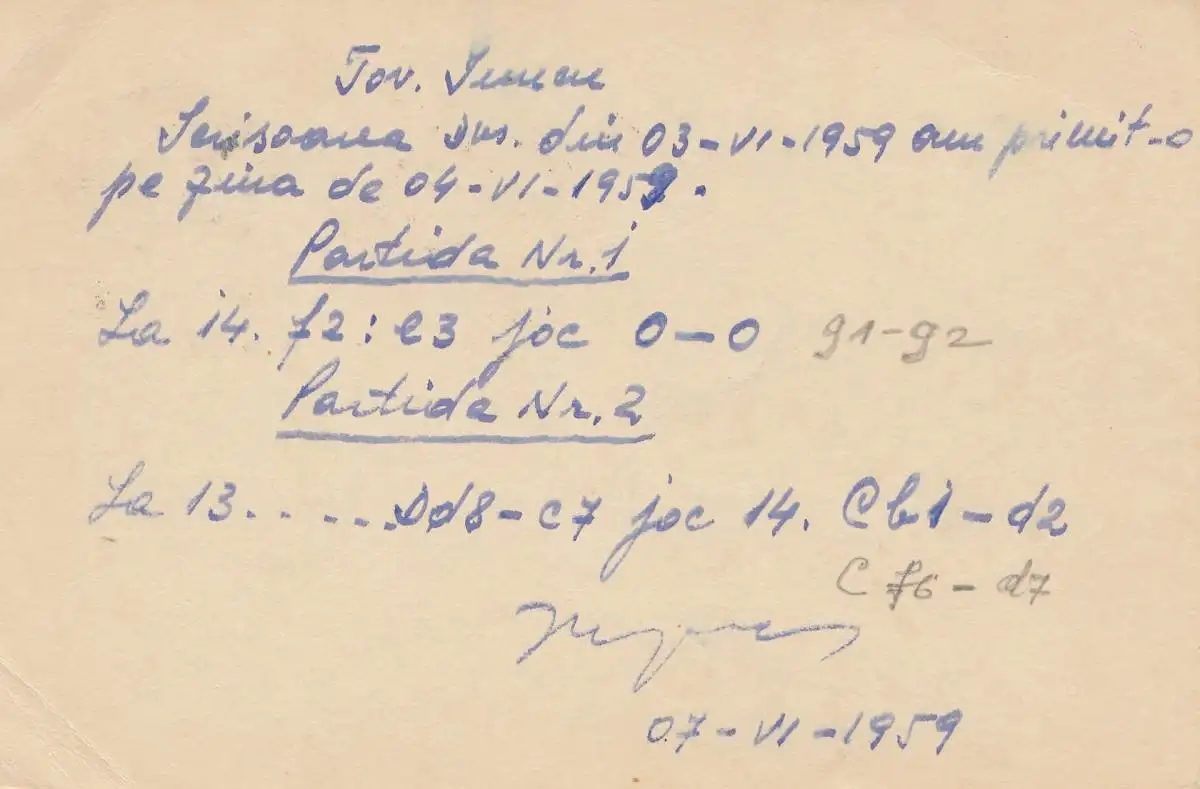 Tov.
Scrisoarea Dvs. din 03-VI-1959 am primit-o
pe ziua de 04-VI-1959.
Partida Nr. 1
La 14. f2:e3 joc 0-0 g1-g2
Partida Nr. 2
La 13......Dd8-c7 joc 14. Cb1-d2
C f6-d7
07-VI-1959